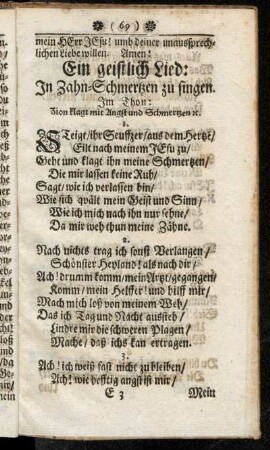 ( 69 )
mein HErr JEsu! umb deiner unaussprech-
lichen Liebe willen. Amen!
Ein geistlich Lied:
In Zahn-Schmertzen zu singen.
Im Thon:
Zion klagt mit Angst und Schmertzen ꝛc.
1.
STeigt/ ihr Seuffzer/ aus dem Hertze/
Eilt nach meinem JEsu zu/
Geht und klagt ihn meine Schmertzen/
Die mir lassen keine Ruh/
Sagt/ wie ich verlassen bin/
Wie sich qvält mein Geist und Sinn/
Wie ich mich nach ihn nur sehne/
Da mir weh thun meine Zähne.
2.
Nach nichts trag ich sonst Verlangen/
Schönster Heyland! als nach dir/
Ach! drumm komm/ mein Artzt/ gegangen/
Komm/ mein Helffer! und hilff mir/
Mach mich loß von meinem Weh/
Das ich Tag und Nacht aussteh/
Lindre mir die schweren Plagen/
Mache/ daß ichs kan ertragen.
3.
Ach! ich weiß fast nicht zu bleiben/
Ach! wie hefftig angst ist mir/
E 3 Mein